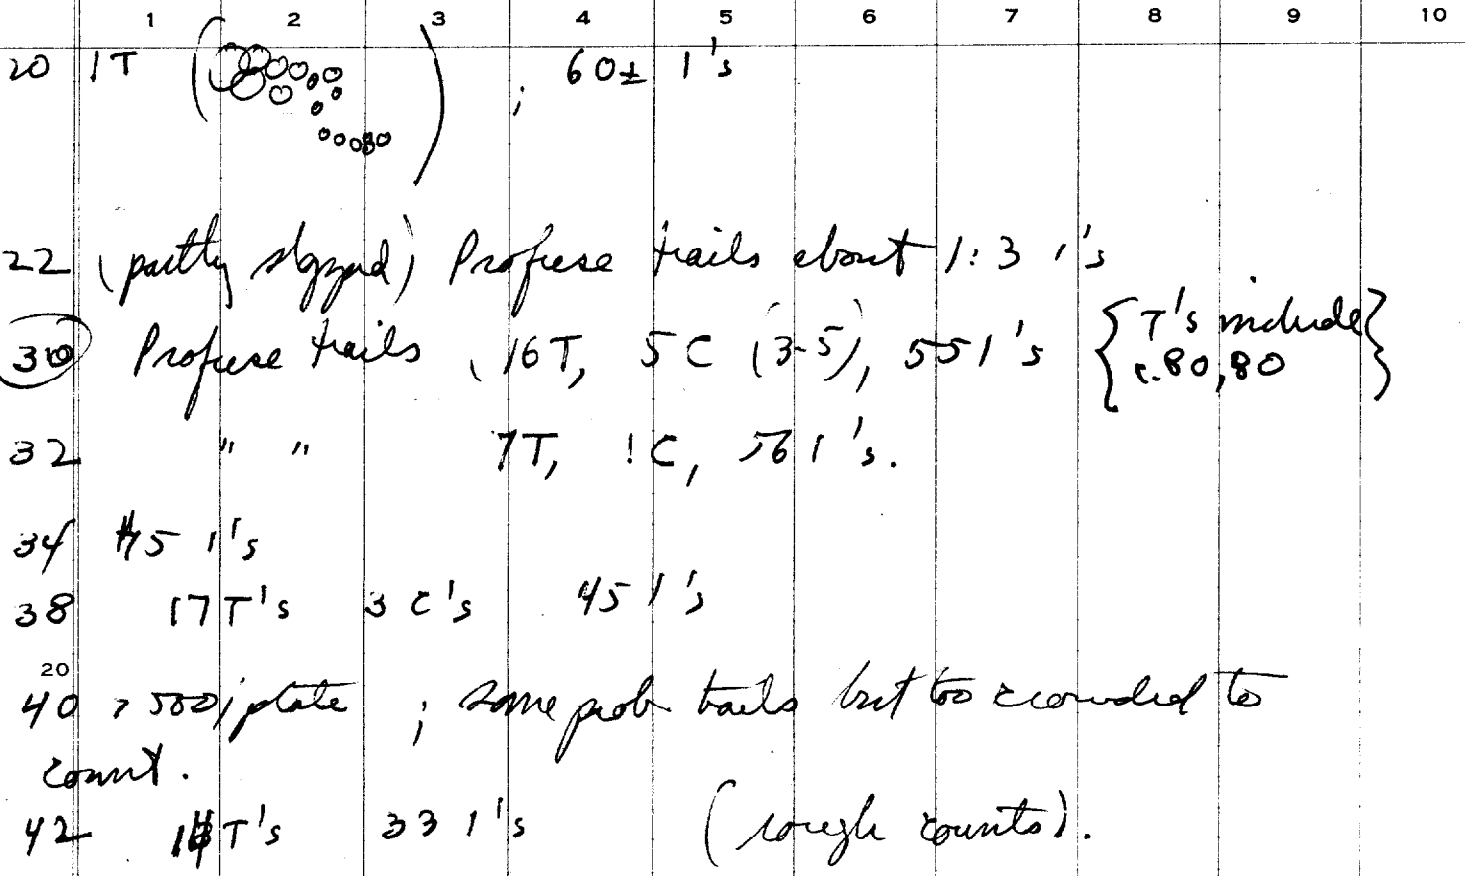 1 2 3 4 5 6 7 8 9 10
20 1T ( ) ; 60± 1's
22 (partly) Profuse trails about 1:3 1's
30 Profuse trails, 16T, 5C (3-5), 55 1's {T's include
c.80, 80}
32 " " 7T, 1C, 56 1's.
34 5 1's
38 17T's 3 C's 45 1's
20
40 > 500/plate ; some prob trails but too crowded to
count.
42 T's 33 1's (rough counts).